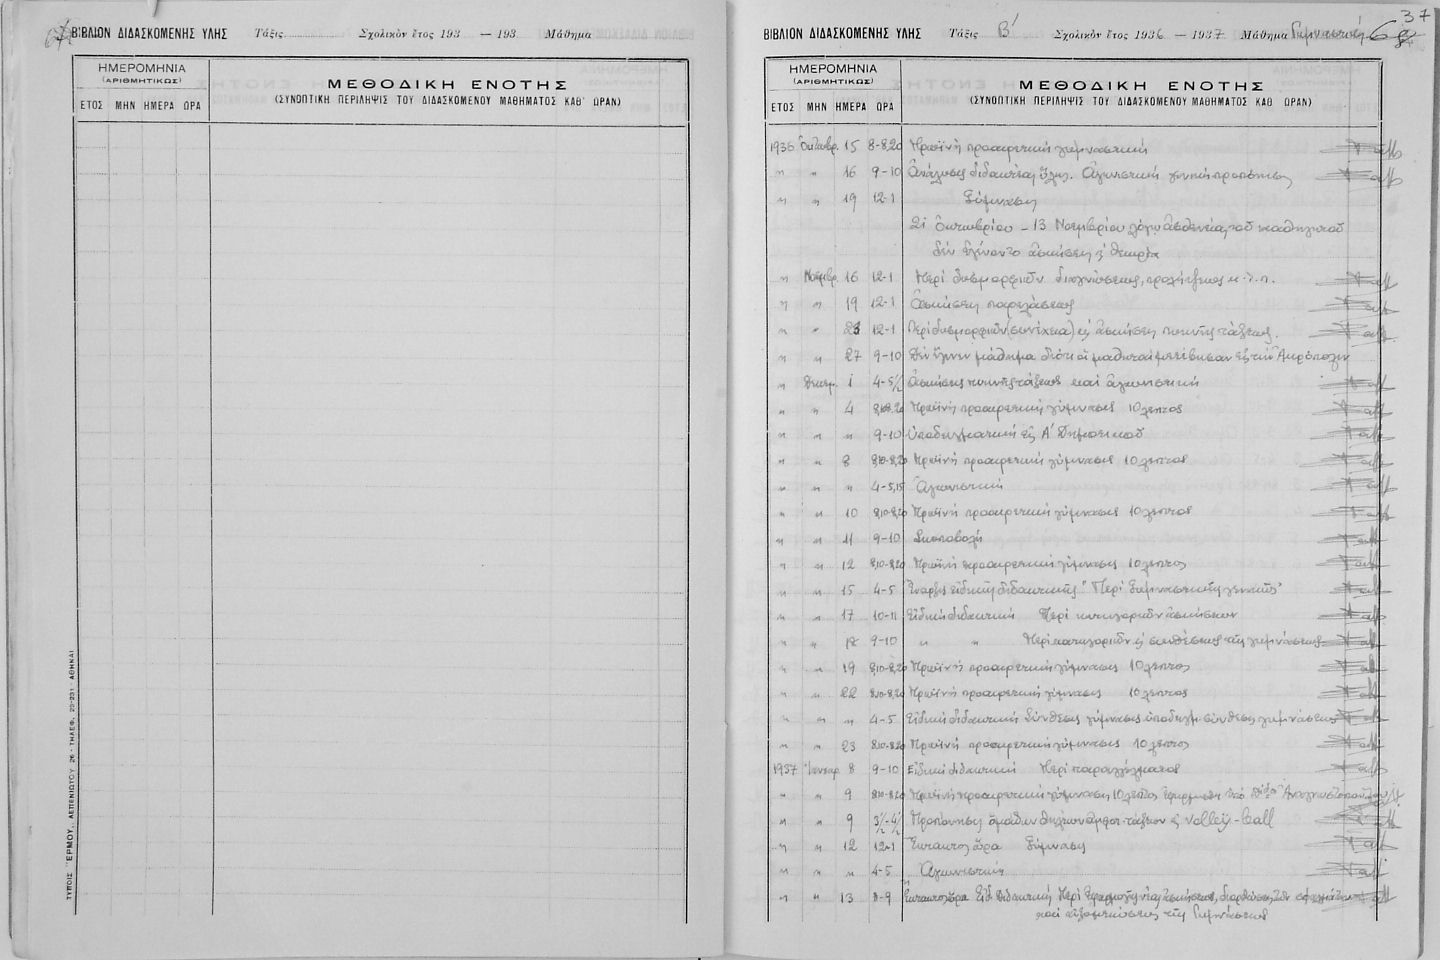 ΒΙΒΛΙΟΝ ΔΙΔΑΣΚΟΜΕΝΗΣ ΥΛΗΣ Τάξις Σχολικὸν ἔτος 193 — 193 Μάθημα
ΗΜΕΡΟΜΗΝΙΑ
(ΑΡΙΘΜΗΤΙΚΩΣ)
ΕΤΟΣ ΜΗΝ ΗΜΕΡΑ ΩΡΑ
ΜΕΘΟΔΙΚΗ ΕΝΟΤΗΣ
(ΣΥΝΟΠΤΙΚΗ ΠΕΡΙΛΗΨΙΣ ΤΟΥ ΔΙΔΑΣΚΟΜΕΝΟΥ ΜΑΘΗΜΑΤΟΣ ΚΑΘ' ΩΡΑΝ)
ΤΥΠΟΙΣ "ΕΡΜΟΥ, ΛΕΠΕΝΙΩΤΟΥ 26 - ΤΗΛΕΦ. 23-231 ΑΘΗΝΑΙ
37
ΒΙΒΛΙΟΝ ΔΙΔΑΣΚΟΜΕΝΗΣ ΥΛΗΣ Τάξις Β' Σχολικὸν ἔτος 1936 — 1937 Μάθημα Γυμναστική
ΗΜΕΡΟΜΗΝΙΑ
(ΑΡΙΘΜΗΤΙΚΩΣ)
ΕΤΟΣ ΜΗΝ ΗΜΕΡΑ ΩΡΑ
ΜΕΘΟΔΙΚΗ ΕΝΟΤΗΣ
(ΣΥΝΟΠΤΙΚΗ ΠΕΡΙΛΗΨΙΣ ΤΟΥ ΔΙΔΑΣΚΟΜΕΝΟΥ ΜΑΘΗΜΑΤΟΣ ΚΑΘ ΩΡΑΝ)
1936 Ὀκτωβρ. 15 8-8,20 Πρωϊνὴ προαιρετικὴ γυμναστική
" " 16 9-10 Ἀνάλυσις διδακτέας ὕλης. Ἀγωνιστικὴ γενικὴ προπόνησις
" " 19 12-1 Γύμνασις
21 Ὀκτωβρίου - 13 Νοεμβρίου λόγῳ ἀσθενείας τοῦ καθηγητοῦ
δὲν ἐγένοντο ἀσκήσεις ἢ θεωρία
" Νοεμβρ. 16 12-1 Περὶ δυσμορφιῶν διαγνώσεως, προλήψεως κ.λ.π.
" " 19 12-1 Ἀσκήσεις παρελάσεως
" " 23 12-1 Περὶ δυσμορφιῶν (συνέχεια) εἰς ἀσκήσεις πυκνῆς τάξεως.
" " 27 9-10 Δὲν ἔγινεν μάθημα διότι οἱ μαθηταὶ μετέβησαν εἰς τὴν Ἀκρόπολιν
" Δεκεμ. 1 4-5½ Ἀσκήσεις πυκνῆς τάξεως καὶ ἀγωνιστική
" " 4 8,10-8,20 Πρωϊνὴ προαιρετικὴ γύμνασις 10λεπτος
" " " 9-10 Ὑποδειγματικὴ εἰς Α' Δημοτικοῦ
" " 8 8,10-8,20 Πρωϊνὴ προαιρετικὴ γύμνασις 10λεπτος
" " " 4-5,15 Ἀγωνιστική
" " 10 8,10-8,20 Πρωϊνὴ προαιρετικὴ γύμνασις 10λεπτος
" " 11 9-10 Σκοποβολή
" " 12 8,10-8,20 Πρωϊνὴ προαιρετικὴ γύμνασις 10λεπτος
" " 15 4-5 Ἔναρξις εἰδικῆς διδακτικῆς "Περὶ Γυμναστικῆς γενικῶς"
" " 17 10-11 Εἰδικὴ διδακτική Περὶ κατηγοριῶν ἀσκήσεων
" " 18 9-10 " " Περὶ κατηγοριῶν ἢ συνθέσεως τῆς γυμνάσεως
" " 19 8,10-8,20 Πρωϊνὴ προαιρετικὴ γύμνασις 10λεπτος
" " 22 8,10-8,20 Πρωϊνὴ προαιρετικὴ γύμνασις 10λεπτος
" " " 4-5 Εἰδικὴ διδακτικὴ Σύνθεσις γύμνασις ὑποδειγμ. σύνθεσις γυμνάσεως
" " 23 8,10-8,20 Πρωϊνὴ προαιρετικὴ γύμνασις 10λεπτος
1937 Ἰανουαρ 8 9-10 Εἰδικὴ διδακτική Περὶ παραγγέλματος
" " 9 8,10-8,20 Πρωϊνὴ προαιρετικὴ γύμνασις 10λεπτος ὑπὸ Δίδος Ἀναγνωστοπούλου
" " 9 3½-4½ Προπόνησις ὁμάδων θηλέων ἀμφοτ. τάξεων εἰς Volley-ball
" " 12 12-1 Ἔκτακτος ὥρα Γύμνασις
" " " 4-5 Ἀγωνιστική
" " 13 8-9 Ἔκτακτος ὥρα Εἰδ. διδακτική Περὶ ἐφαρμογῆς νέας ἀσκήσεως, διορθώσεως τῶν σφαλμάτων
καὶ τῆς Γυμνάσεως